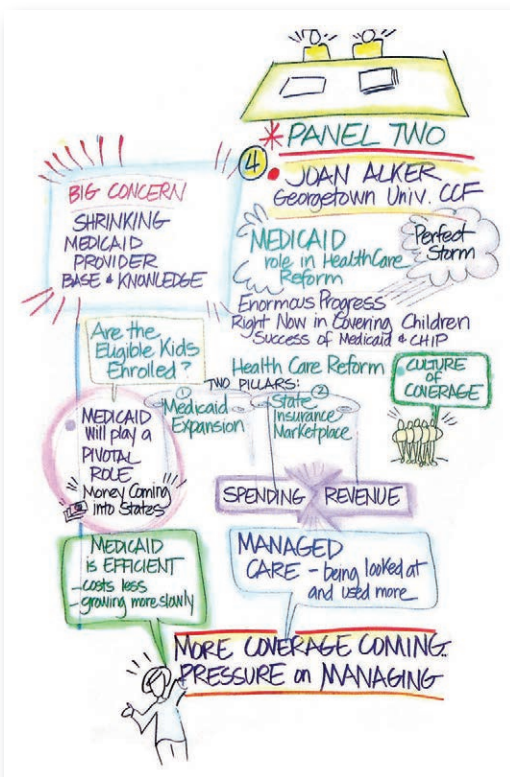 * PANEL TWO
4
• JOAN ALKER
Georgetown Univ. CCF
BIG CONCERN
SHRINKING
MEDICAID
PROVIDER
BASE & KNOWLEDGE
MEDICAID
role in HealthCare
Reform
Perfect
Storm
Enormous Progress
Right Now in Covering Children
Success of Medicaid & CHIP
Are the
Eligible Kids
Enrolled?
Health Care Reform
• CULTURE
OF
COVERAGE
TWO PILLARS:
1
Medicaid
Expansion
2
State
Insurance
Marketplace
• MEDICAID
Will play a
PIVOTAL
ROLE
Money Coming
into States
SPENDING
REVENUE
MEDICAID
is EFFICIENT
- costs less
- growing more slowly
MANAGED
CARE - being looked at
and used more
MORE COVERAGE COMING..
PRESSURE on MANAGING